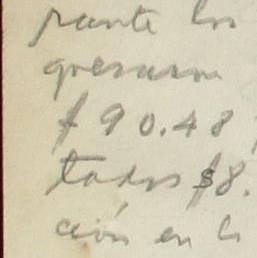 rante los
$90.48
tados $8.
ción en la